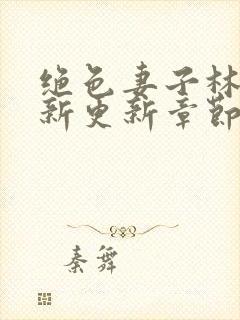 绝色妻子林
新更新章节
秦舞